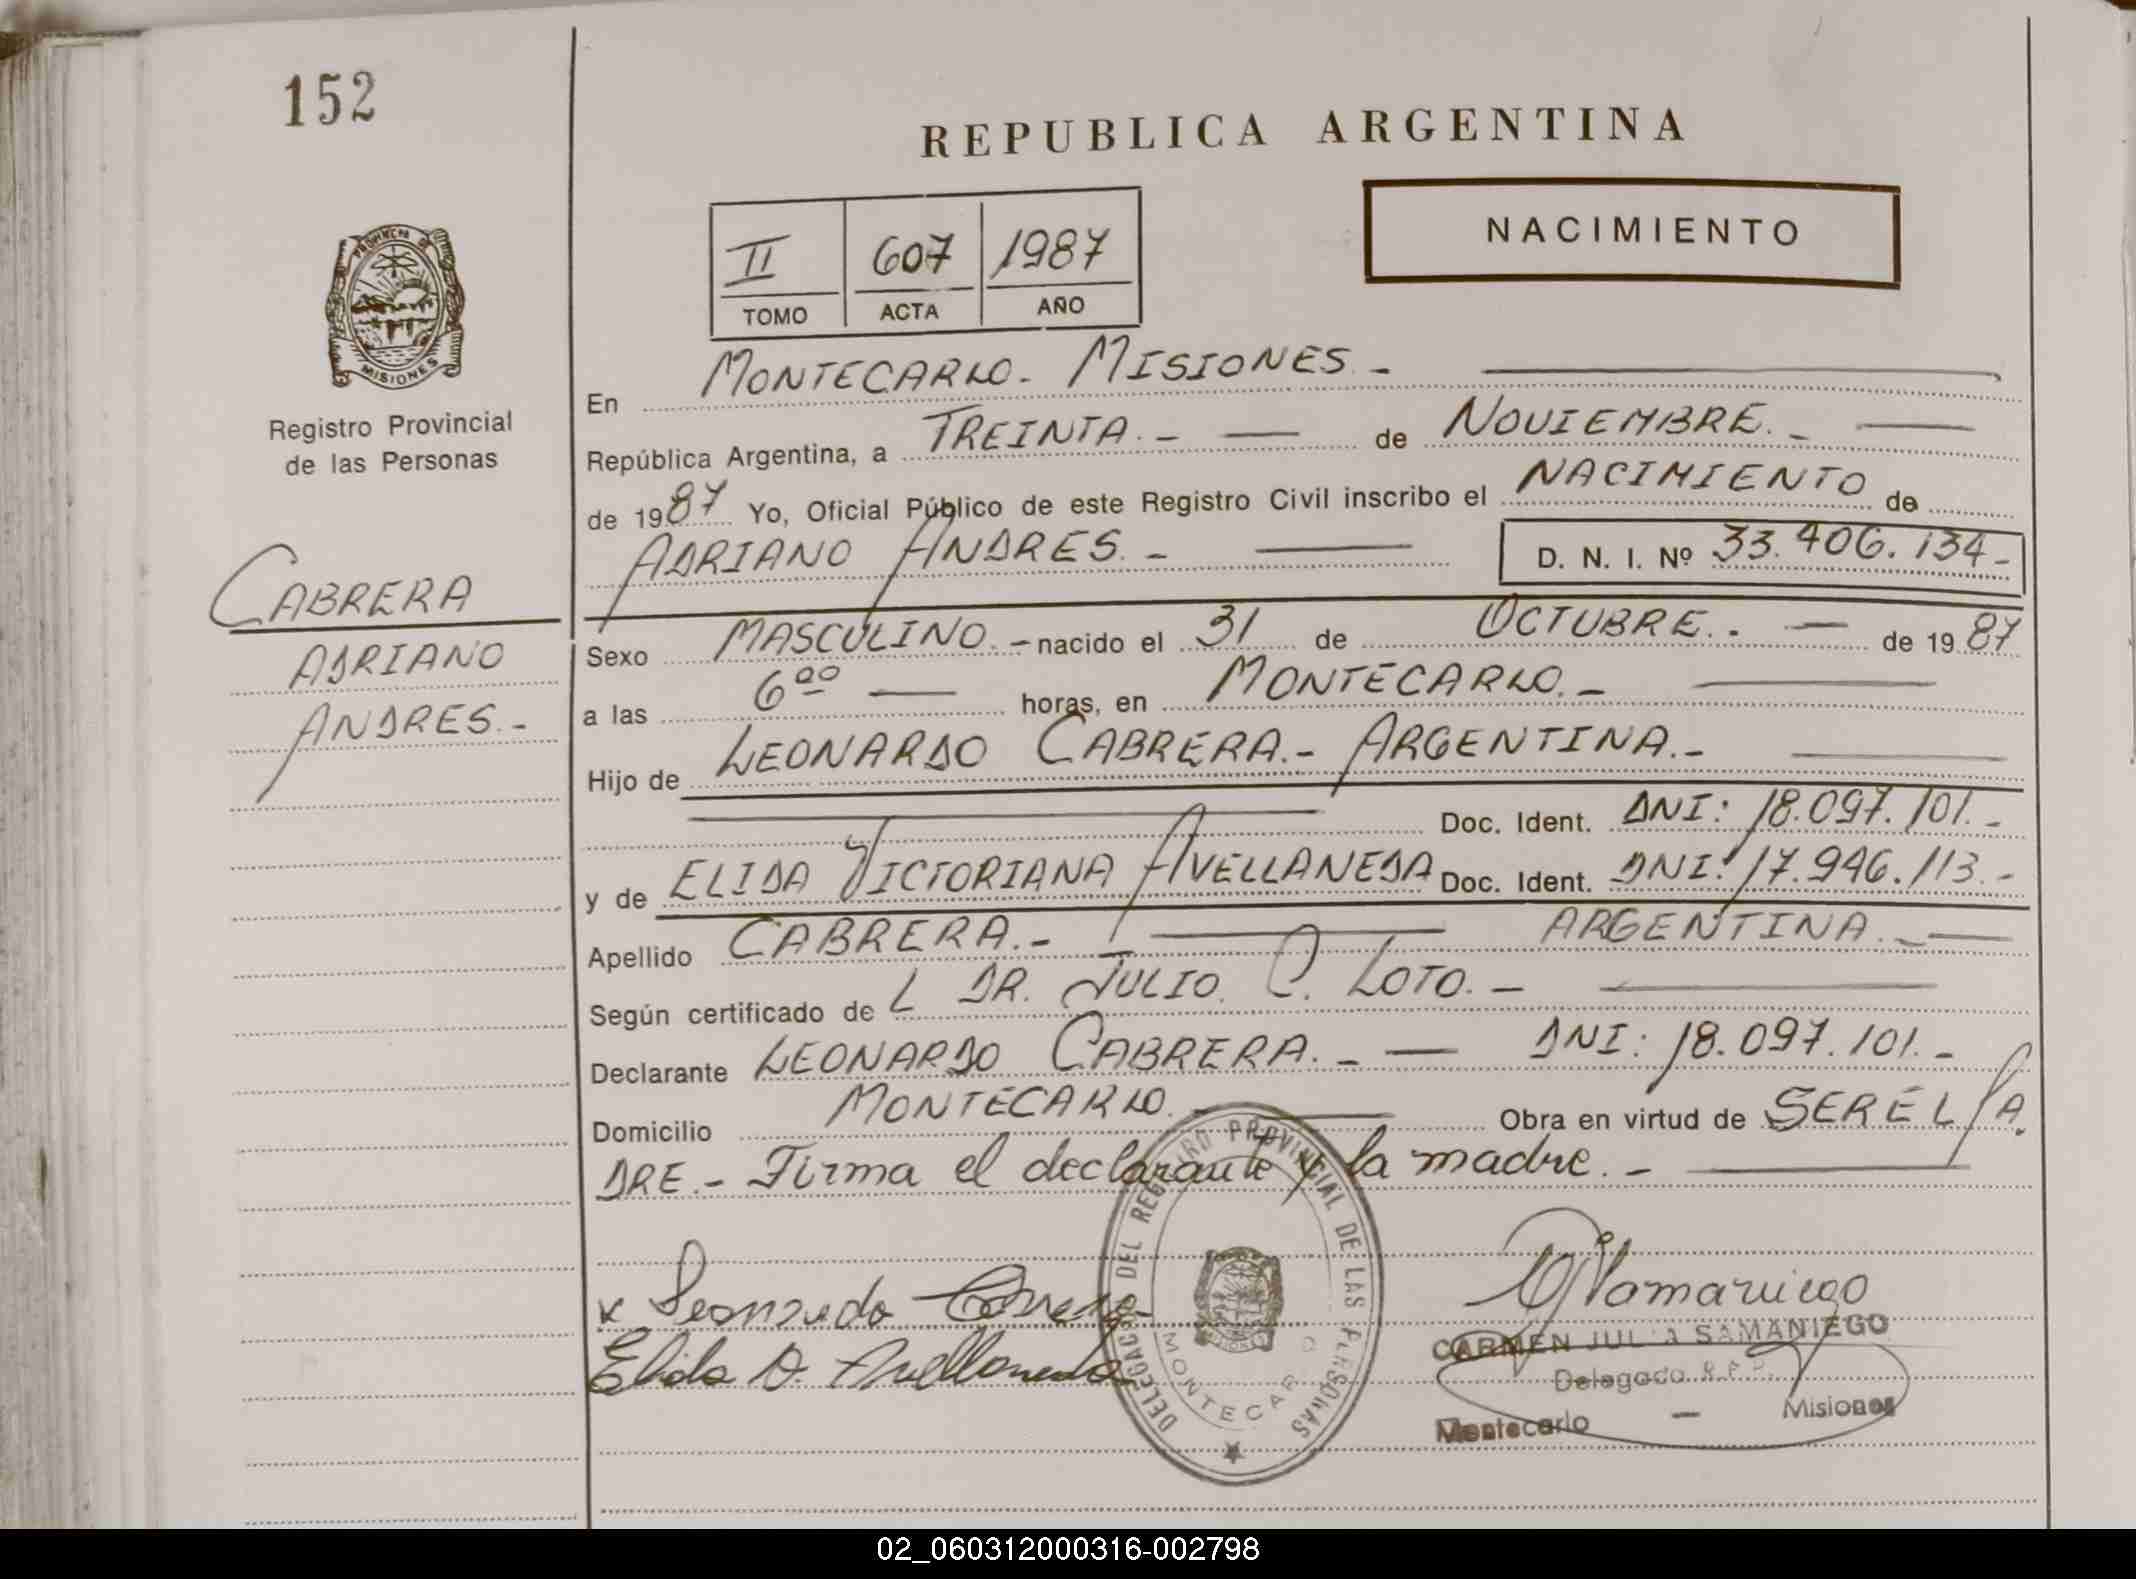 152
REPUBLICA ARGENTINA
NACIMIENTO
II 607 1987
TOMO ACTA AÑO
PROVINCIA DE
MISIONES
Registro Provincial
de las Personas
CABRERA
ADRIANO
ANDRES.-
En MONTECARLO.- MISIONES.-
República Argentina, a TREINTA.- de NOVIEMBRE.-
de 1987 Yo, Oficial Público de este Registro Civil inscribo el NACIMIENTO de
ADRIANO ANDRES.- D. N. I. Nº 33.406.134-
Sexo MASCULINO.- nacido el 31 de OCTUBRE.- de 1987
a las 6 00 horas, en MONTECARLO.-
Hijo de LEONARDO CABRERA.- ARGENTINA.-
Doc. Ident. DNI: 18.097.101.-
y de ELIDA VICTORIANA AVELLANEDA Doc. Ident. DNI: 17.946.113.-
Apellido CABRERA.- ARGENTINA.-
Según certificado de L DR. JULIO. C. LOTO.-
Declarante LEONARDO CABRERA.- DNI: 18.097.101.-
Domicilio MONTECARLO.- Obra en virtud de SER EL PA.
DRE.- Firma el declarante y la madre.-
x Leonardo Cabrera
Elida V. Avellaneda
DELEGACIO DEL REGISTRO PROVINCIAL DE LAS PERSONAS
MONTECARLO
CJSamaniego
CARMEN JULIA SAMANIEGO
Delegada R.P.P.
Montecarlo - Misiones
02_060312000316-002798